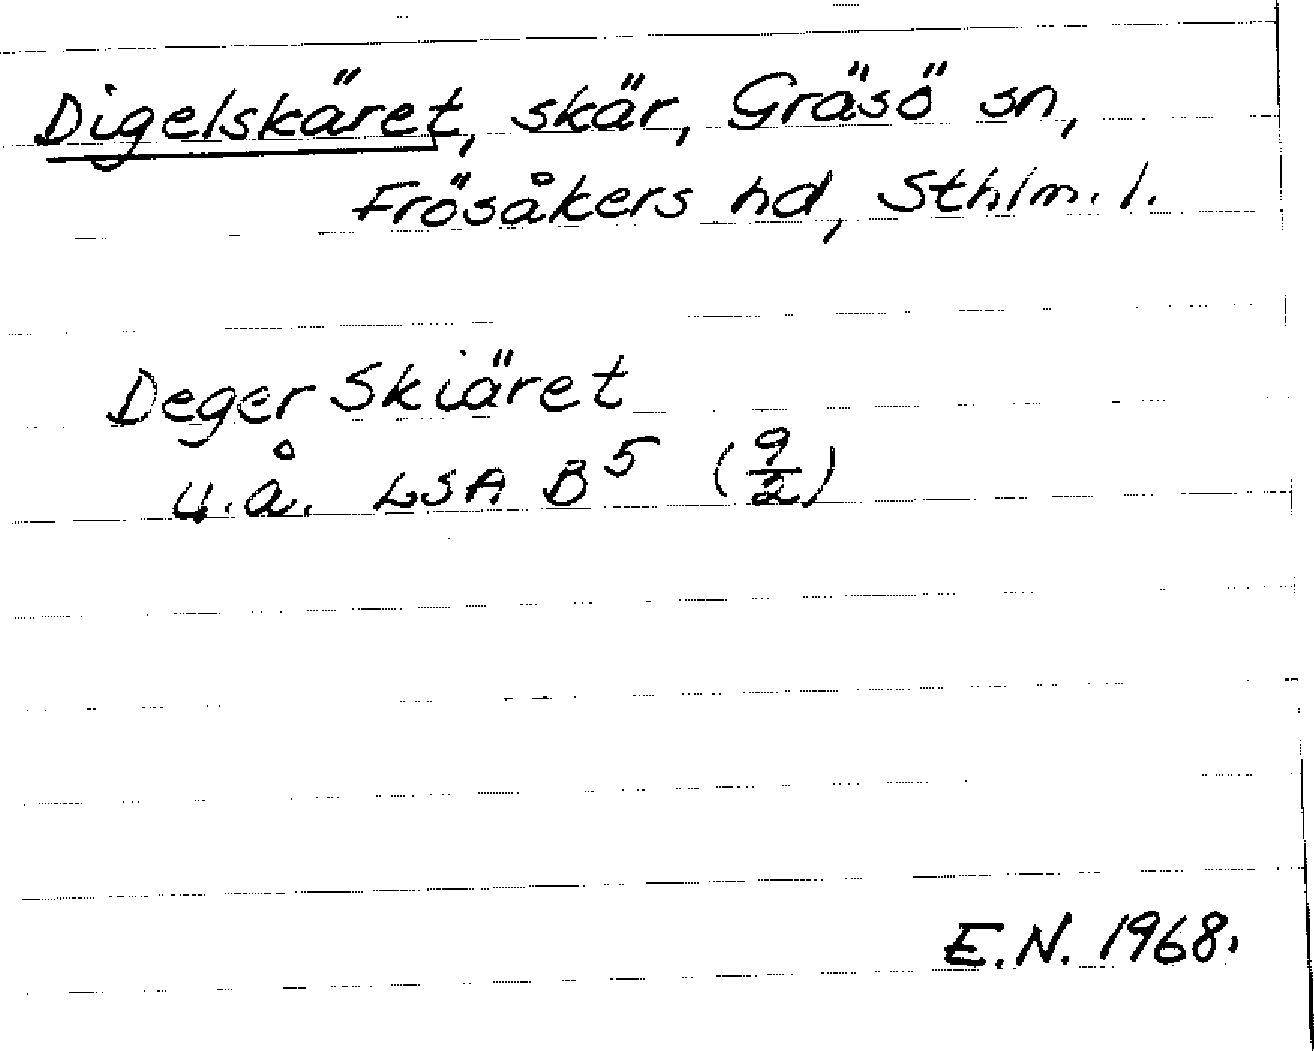 Digelskäret, skär, Gräsö sn,
Frösåkers hd, Sthlm. l.
Deger Skiäret
u.å. LSA B⁵ (9/2)
E.N. 1968.